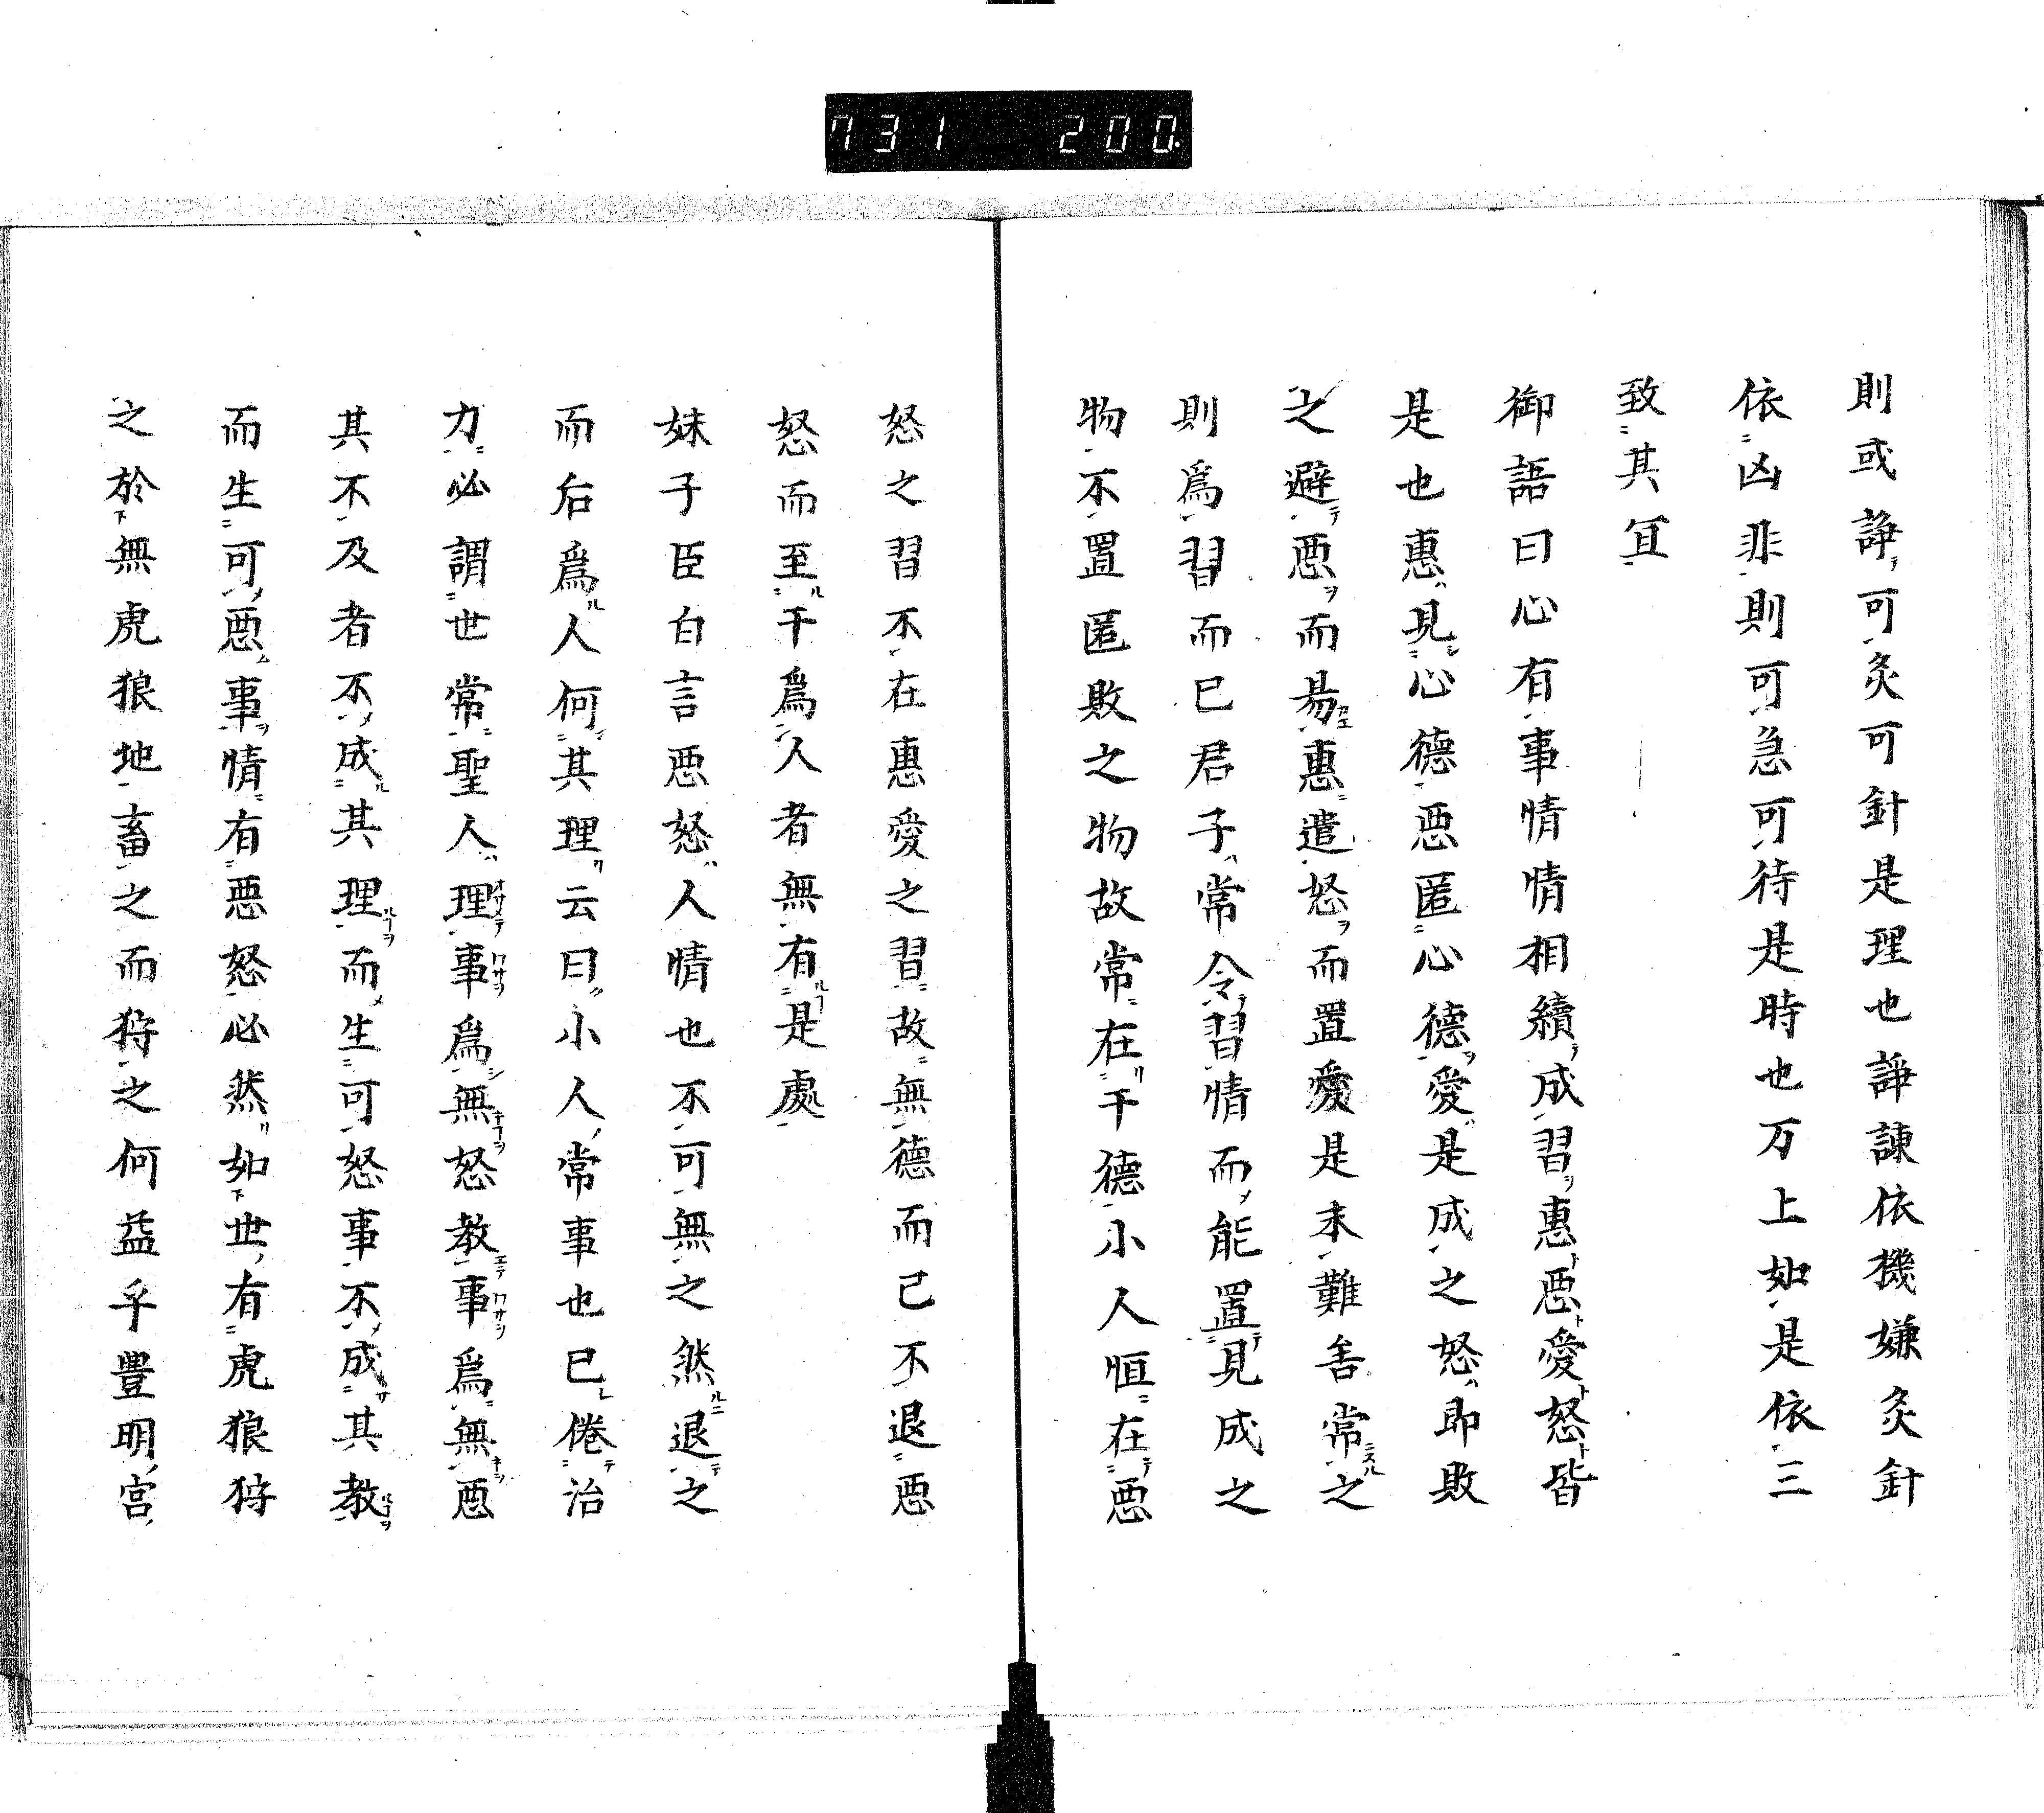 731 200
則或諍可灸可針是理也諍諌依機嫌灸針
依凶非則可急可待是時也万上如是依三
致其冝
御語曰心有事情情相續成習惠悪愛怒皆
是也惠見心德悪匿心德愛是成之怒即敗
之避悪而易惠遣怒而置愛是未難吿常之
則爲習而已君子常令習情而能置見成之
物不置匿敗之物故常在于德小人恒在悪
怒之習不在惠愛之習故無德而已不退悪
怒而至于爲人者無有是處
妹子臣白言悪怒人情也不可無之然退之
而后爲人何其理云曰小人常事也已倦治
力必謂世常聖人理事爲無怒教事爲無悪
其不及者不成其理而生可怒事不成其教
而生可悪事情有悪怒必然如世有虎狼狩
之於無虎狼地畜之而狩之何益乎豊明宮